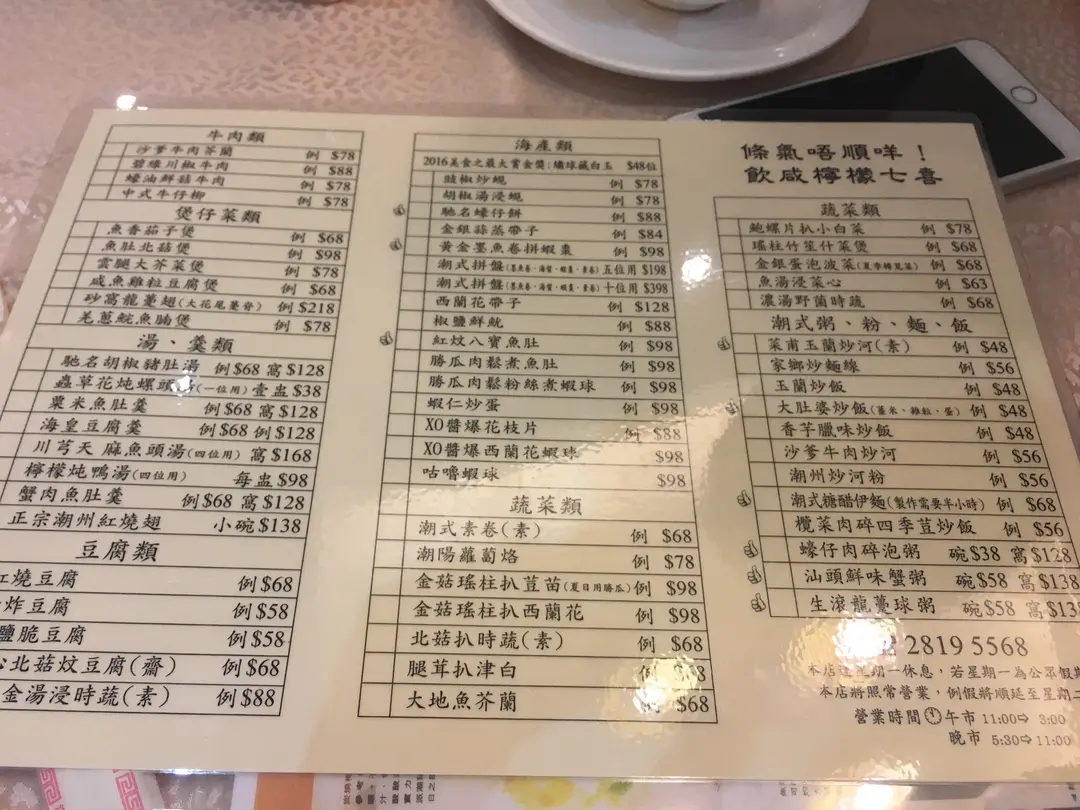 牛肉類
沙爹牛肉芥蘭 例 $78
碧綠川椒牛肉 例 $88
蠔油鮮菇牛肉 例 $78
中式牛仔柳 例 $78
煲仔菜類
魚香茄子煲 例 $68
魚肚北菇煲 例 $98
雲腿大芥菜煲 例 $78
咸魚雞粒豆腐煲 例 $68
砂窩龍躉翅(大花尾躉脊) 例 $218
羌蔥鯇魚腩煲 例 $78
湯、羹類
馳名胡椒豬肚湯 例$68 窩$128
蟲草花炖螺頭(一位用) 壹盅$38
粟米魚肚羹 例$68 窩$128
海皇豆腐羹 例$68 例$128
川芎天麻魚頭湯(四位用) 窩$168
檸檬炖鴨湯(四位用) 每盅$98
蟹肉魚肚羹 例$68 窩$128
正宗潮州紅燒翅 小碗$138
豆腐類
紅燒豆腐 例$68
炸豆腐 例$58
鹽脆豆腐 例$58
北菇炆豆腐(齋) 例$68
金湯浸時蔬(素) 例$88
海產類
2016美食之最大賞金獎:繡球藏白玉 $48位
豉椒炒蜆 例 $78
胡椒湯浸蜆 例 $78
馳名蠔仔餅 例 $88
金銀蒜蒸帶子 例 $84
黃金墨魚卷拼蝦棗 例 $98
潮式拼盤(墨魚卷、海蜇、蝦棗、素卷) 五位用 $198
潮式拼盤(墨魚卷、海蜇、蝦棗、素卷) 十位用 $398
西蘭花帶子 例 $128
椒鹽鮮魷 例 $88
紅炆八寶魚肚 例 $98
勝瓜肉鬆煮魚肚 例 $98
勝瓜肉鬆粉絲煮蝦球 例 $98
蝦仁炒蛋 例 $98
XO醬爆花枝片 例 $88
XO醬爆西蘭花蝦球 $98
咕嚕蝦球 $98
蔬菜類
潮式素卷(素) 例 $68
潮陽蘿蔔烙 例 $78
金菇瑤柱扒荳苗(夏日用勝瓜) 例 $98
金菇瑤柱扒西蘭花 例 $98
北菇扒時蔬(素) 例 $68
腿茸扒津白 例
大地魚芥蘭 $68
條氣唔順咩！
飲咸檸檬七喜
蔬菜類
鮑螺片扒小白菜 例 $78
瑤柱竹笙什菜煲 例 $68
金銀蛋泡波菜(夏季轉莧菜) 例 $68
魚湯浸菜心 例 $63
濃湯野菌時蔬 例 $68
潮式粥、粉、麵、飯
菜甫玉蘭炒河(素) 例 $48
家鄉炒麵線 例 $56
玉蘭炒飯 例 $48
大肚婆炒飯(薑米、雞粒、蛋) 例 $48
香芋臘味炒飯 例 $48
沙爹牛肉炒河 例 $56
潮州炒河粉 例 $56
潮式糖醋伊麵(製作需要半小時) 例 $68
欖菜肉碎四季荳炒飯 例 $56
蠔仔肉碎泡粥 碗$38 窩$128
汕頭鮮味蟹粥 碗$58 窩$138
生滾龍躉球粥 碗$58 窩$13
2819 5568
本店逢星期一休息，若星期一為公眾假期
本店將照常營業，例假將順延至星期二
營業時間 午市 11:00⇨ 3:00
晚市 5:30⇨11:00